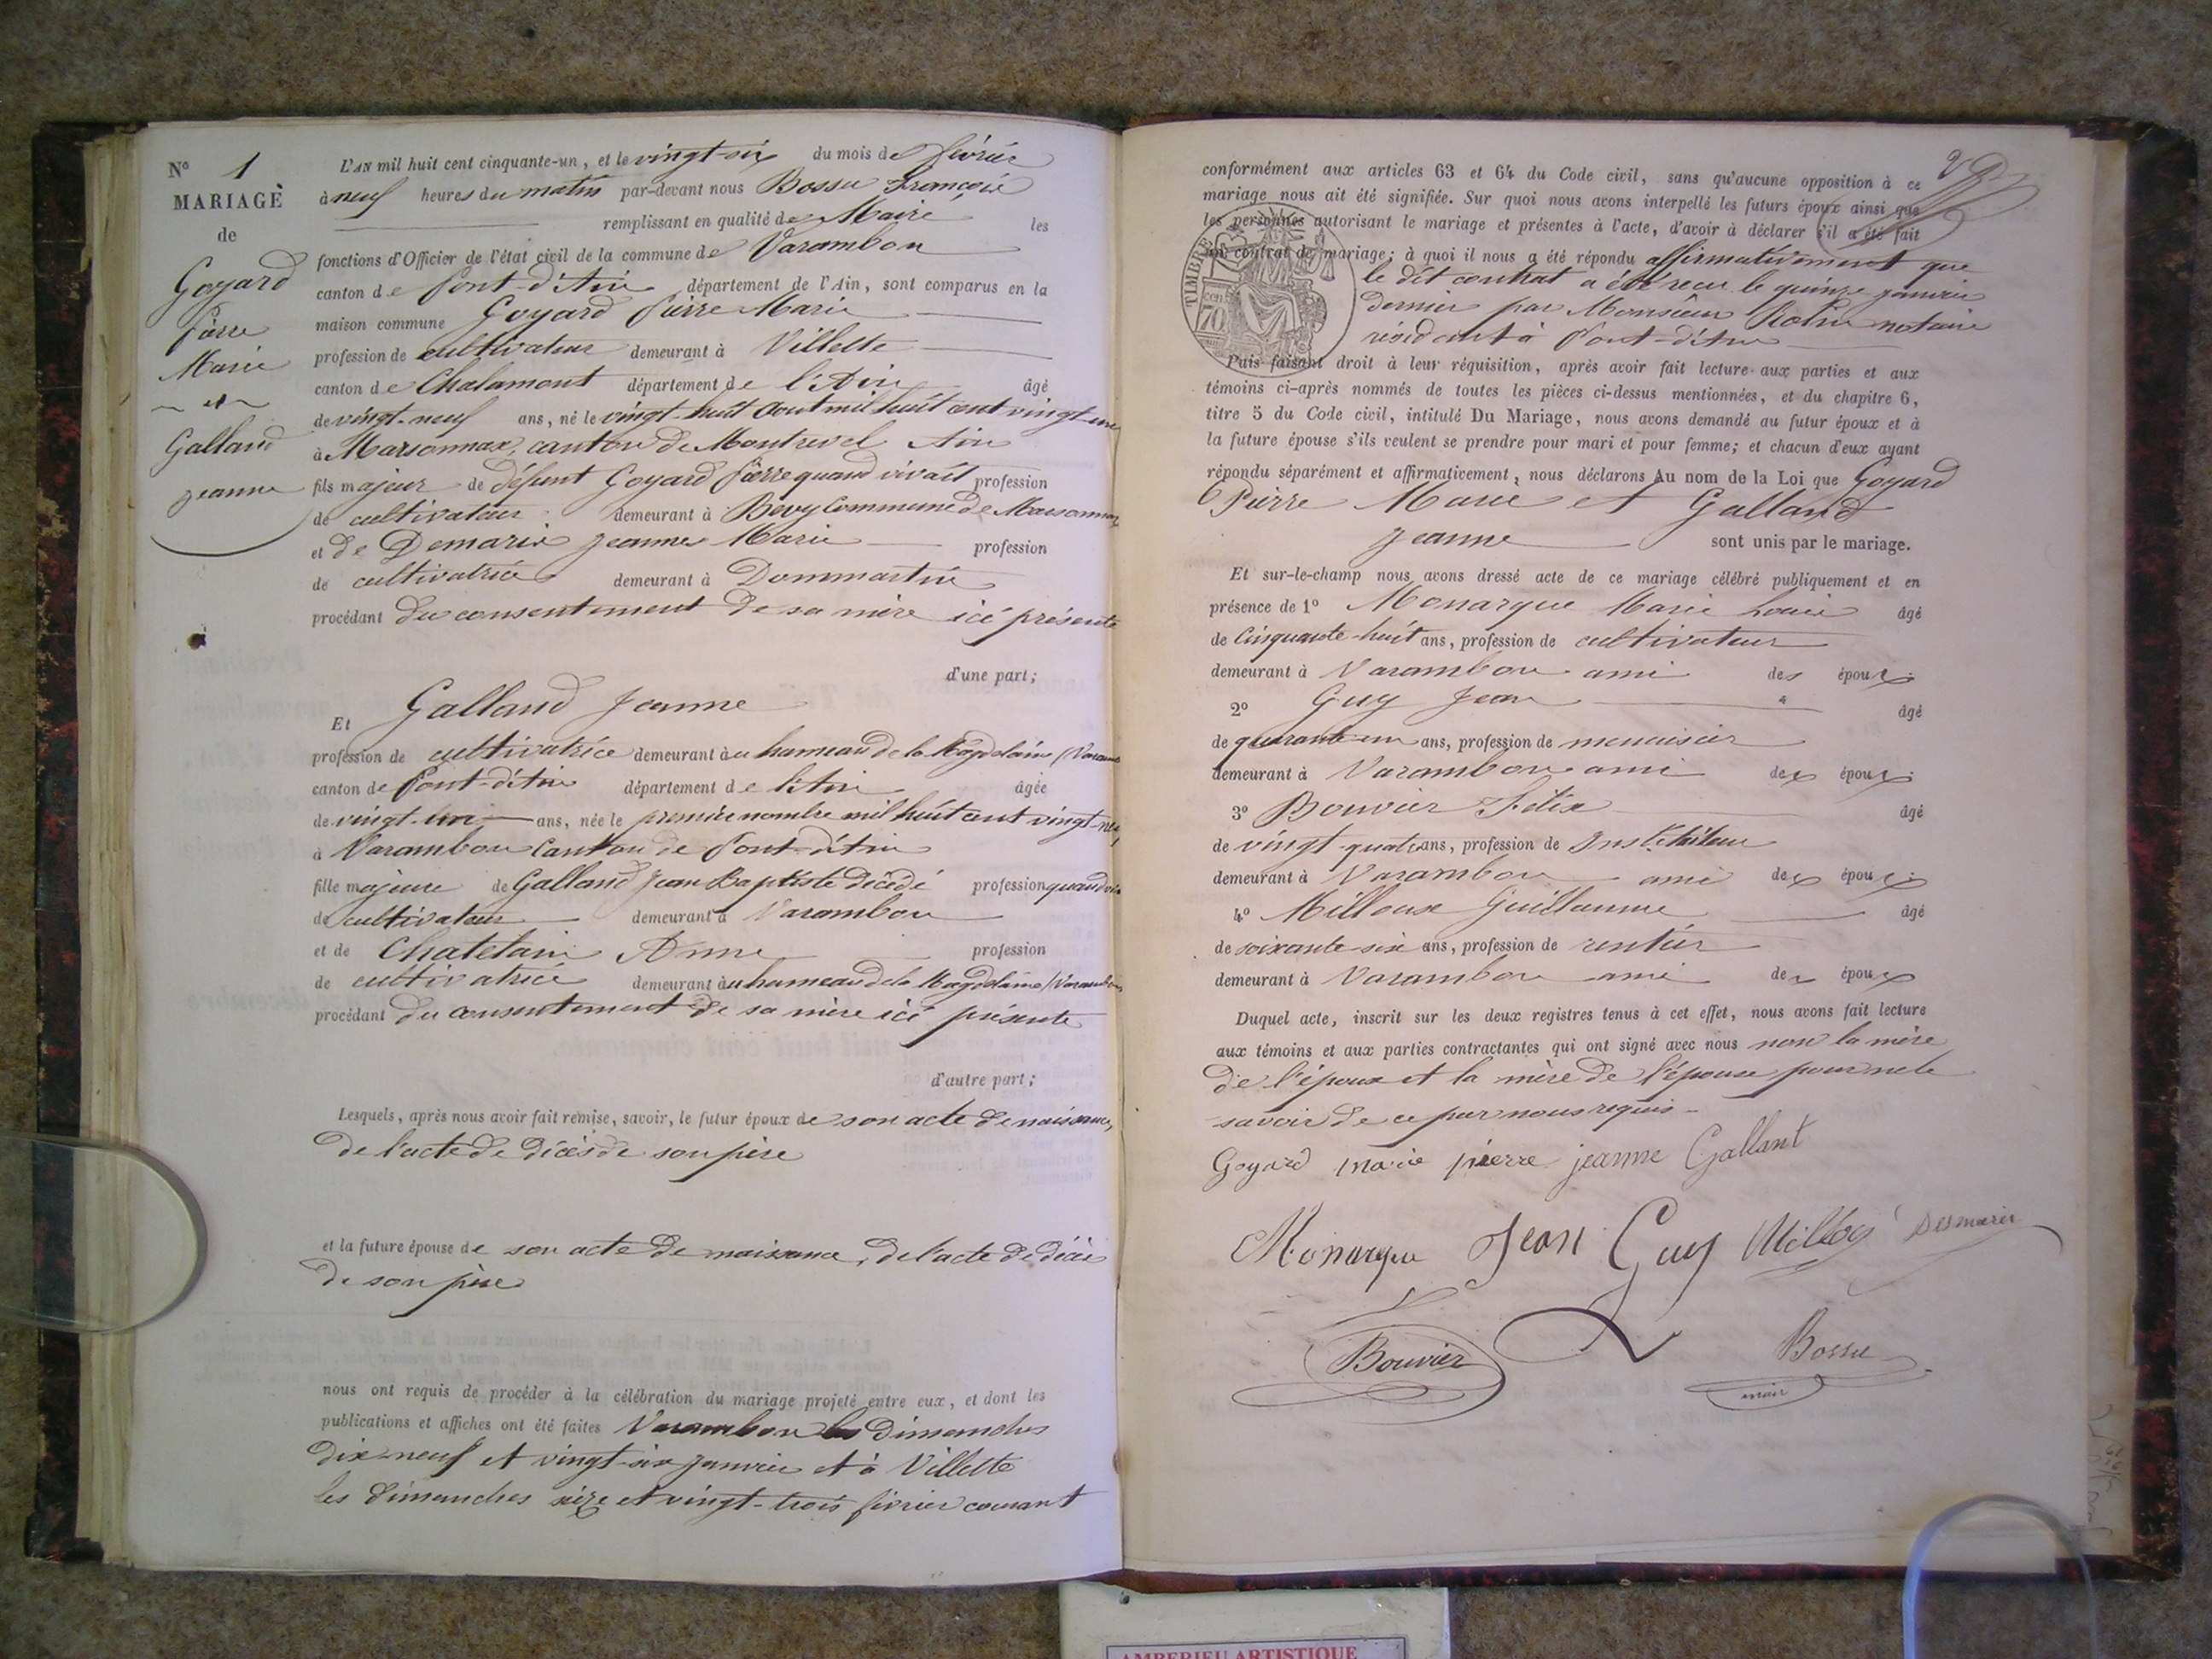 N° 1
MARIAGE
de
Goyard
Pierre
Marie
et
Galland
jeanne
L'AN mil huit cent cinquante-un, et le vingt-six du mois de février
à neuf heures du matin par-devant nous Bossu François
remplissant en qualité de Maire les
fonctions d'Officier de l'état civil de la commune de Varambon
canton de Pont-d'Ain département de l'Ain, sont comparus en la
maison commune Goyard Pierre Marie
profession de cultivateur demeurant à Villette
canton de Chalamont département de l'Ain âgé
de vingt-neuf ans, né le vingt-huit aout mil huit cent vingt-un
à Marsonnax, canton de Montrevel Ain
fils majeur de défunt Goyard Pierre quand vivait profession
de cultivateur demeurant à Bevy Commune de Marsonnax
et de Demarix jeanne Marie profession
de cultivatrice demeurant à Dommartin
procédant du consentement de sa mère ici présente
d'une part;
Et Galland jeanne
profession de cultivatrice demeurant à au hameau de la Magdelaine (Varambon
canton de Pont-d'Ain département de l'Ain âgée
de vingt-un ans, née le premier novembre mil huit cent vingt-neuf
à Varambon Canton de Pont-d'Ain
fille majeure de Galland jean Baptiste décédé profession quand vivait
de cultivateur demeurant à Varambon
et de Chatelain Anne profession
de cultivatrice demeurant à au hameau de la Magdelaine (Varambon
procédant du consentement de sa mère ici présente
d'autre part;
Lesquels, après nous avoir fait remise, savoir, le futur époux de son acte de naissance,
de l'acte de décès de son père
et la future épouse de son acte de naissance, de l'acte de décès
de son père
nous ont requis de procéder à la célébration du mariage projeté entre eux, et dont les
publications et affiches ont été faites Varambon les dimanches
dix-neuf et vingt-six janvier et à Villette
les dimanches seize et vingt-trois février courant
conformément aux articles 63 et 64 du Code civil, sans qu'aucune opposition à ce
mariage nous ait été signifiée. Sur quoi nous avons interpellé les futurs époux ainsi que
les personnes autorisant le mariage et présentes à l'acte, d'avoir à déclarer s'il a été fait
un contrat de mariage; à quoi il nous a été répondu affirmativement que
le dit contrat a été recu le quinze janvier
dernier par Monsieur Rolin notaire
résidant à Pont-d'Ain
TIMBRE
70
Puis faisant droit à leur réquisition, après avoir fait lecture aux parties et aux
témoins ci-après nommés de toutes les pièces ci-dessus mentionnées, et du chapitre 6,
titre 5 du Code civil, intitulé Du Mariage, nous avons demandé au futur époux et à
la future épouse s'ils veulent se prendre pour mari et pour femme; et chacun d'eux ayant
répondu séparément et affirmativement, nous déclarons Au nom de la Loi que Goyard
Pierre Marie et Galland
jeanne sont unis par le mariage.
Et sur-le-champ nous avons dressé acte de ce mariage célébré publiquement et en
présence de 1° Monarque Marie Louis âgé
de Cinquante-huit ans, profession de cultivateur
demeurant à Varambon ami des époux.
2° Guy Jean âgé
de quarante-un ans, profession de menuisier
demeurant à Varambon ami des époux.
3° Bouvier Félix âgé
de vingt-quatre ans, profession de Instituteur
demeurant à Varambon ami des époux.
4° Milloux Guillaume âgé
de soixante-six ans, profession de rentier
demeurant à Varambon ami des époux
Duquel acte, inscrit sur les deux registres tenus à cet effet, nous avons fait lecture
aux témoins et aux parties contractantes qui ont signé avec nous non la mère
de l'époux et la mère de l'épouse pour ne le
savoir de ce par nous requis
Goyard marie pierre jeanne Gallant
Monarque Jean Guy Desmaris
Bouvier Bossu
mair
AMBERIEU ARTISTIQUE